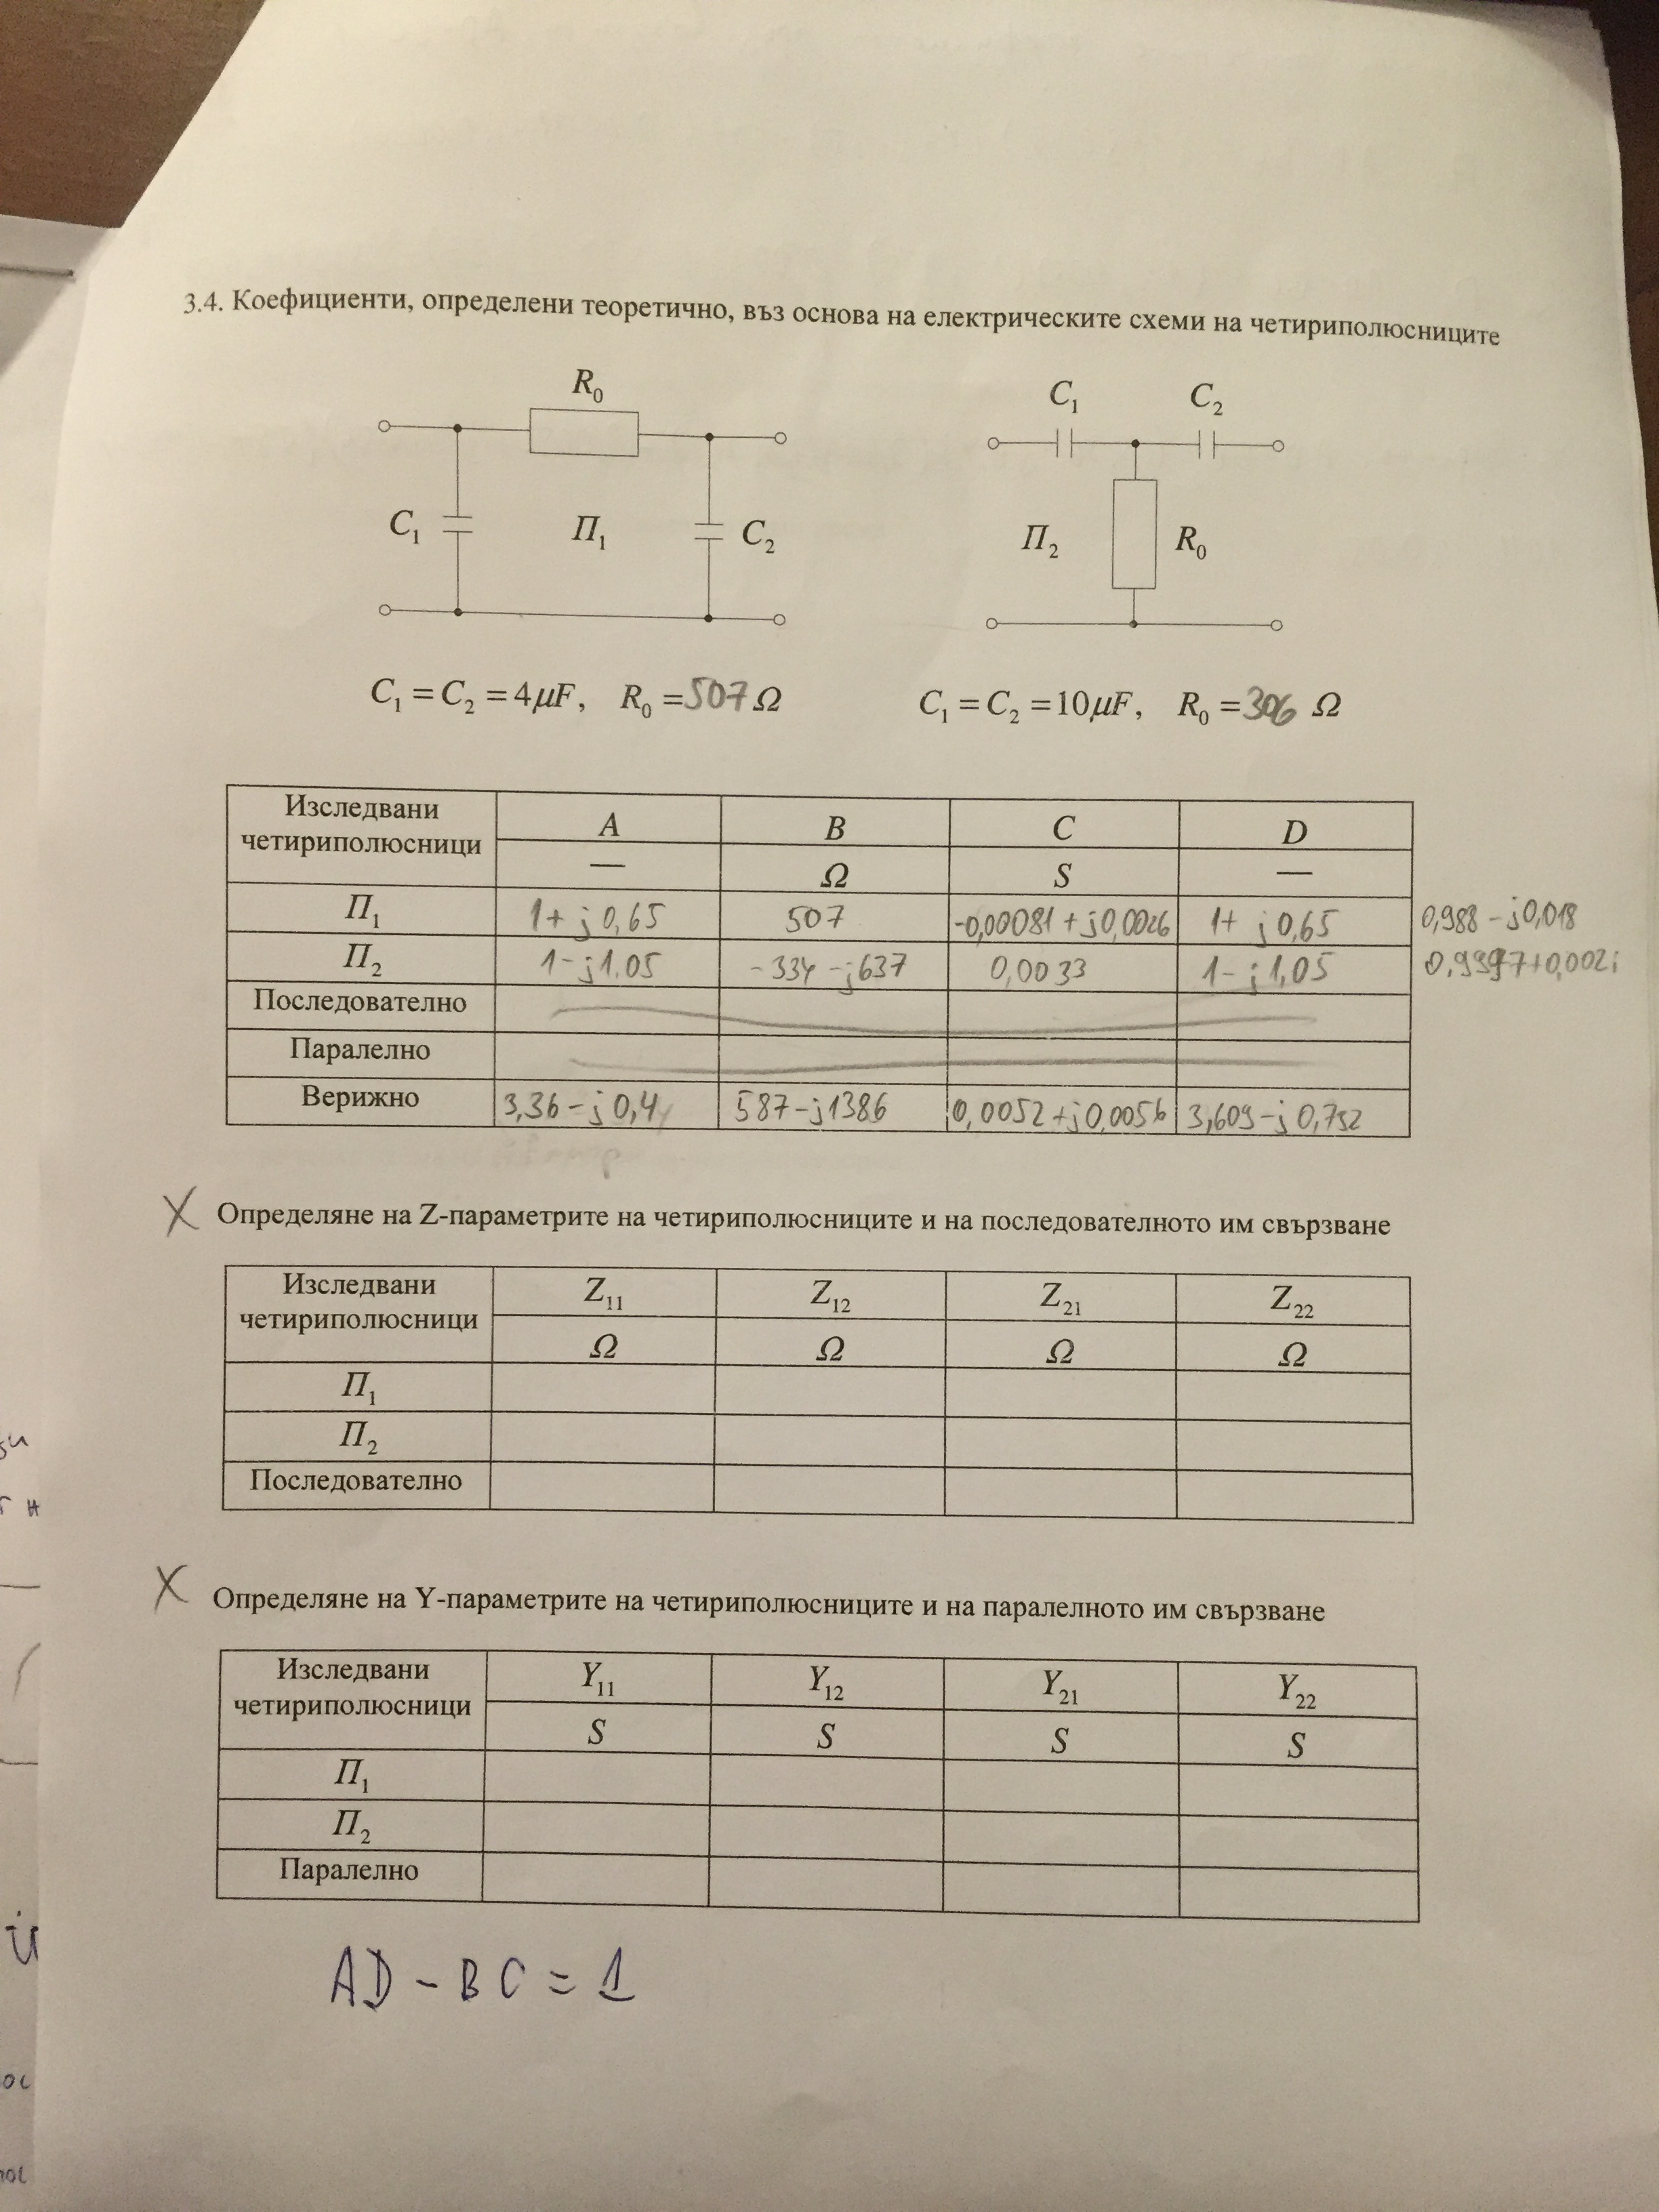 3.4. Коефициенти, определени теоретично, въз основа на електрическите схеми на четириполюсниците
R₀
C₁ Π₁ C₂
C₁ C₂
Π₂ R₀
C₁ = C₂ = 4μF, R₀ = 507 Ω
C₁ = C₂ = 10μF, R₀ = 306 Ω
Изследвани четириполюсници A B C D
— Ω S —
Π₁ 1+ j0,65 507 -0,00081 + j0,0026 1+ j0,65 0,988 - j0,018
Π₂ 1- j1.05 -334 - j637 0,0033 1- j1,05 +0,002i
Последователно
Паралелно
Верижно 3,36 - j0,4 587 - j1386 0,0052 + j0,0056 3,609 - j0,752
X Определяне на Z-параметрите на четириполюсниците и на последователното им свързване
Изследвани четириполюсници Z₁₁ Z₁₂ Z₂₁ Z₂₂
Ω Ω Ω Ω
Π₁
Π₂
Последователно
X Определяне на Y-параметрите на четириполюсниците и на паралелното им свързване
Изследвани четириполюсници Y₁₁ Y₁₂ Y₂₁ Y₂₂
S S S S
Π₁
Π₂
Паралелно
AD - BC = 1